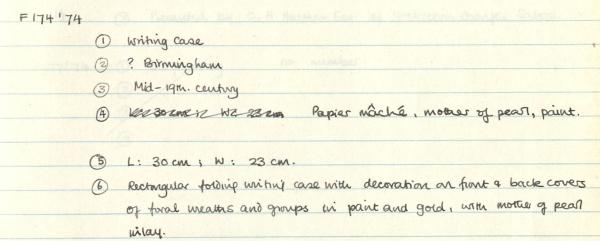 F174'74
① Writing case
② ? Birmingham
③ Mid-19th. century
④ L: 30cm W: 23cm Papier mâché, mother of pearl, paint.
⑤ L: 30cm; W: 23cm.
⑥ Rectangular folding writing case with decoration on front & back covers
of foral wreaths and groups in paint and gold, with mother of pearl
inlay.